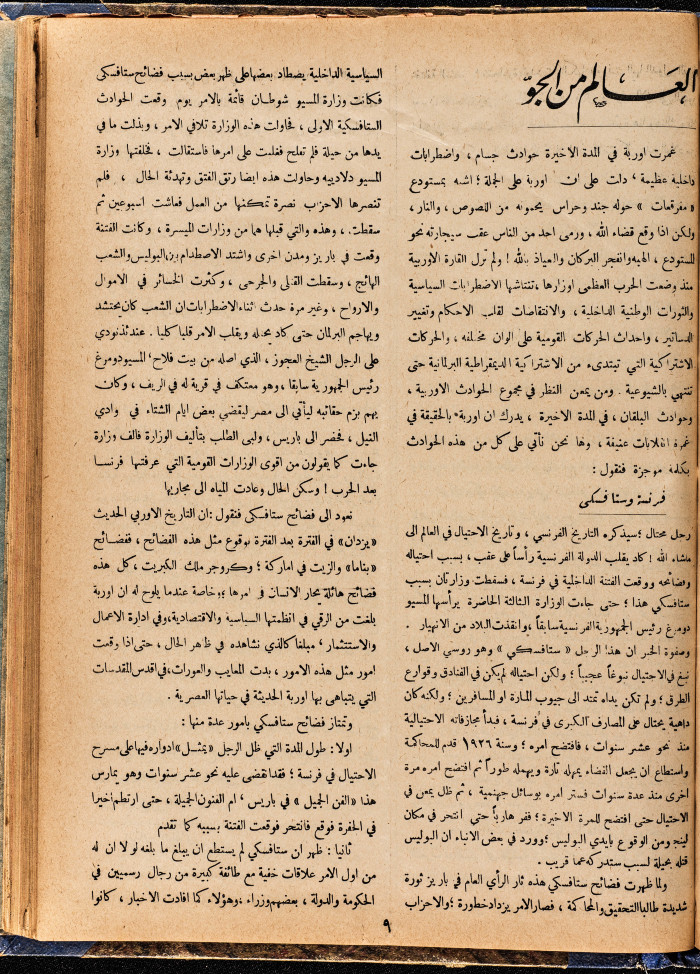 العالم من الجوّ
غمرت اوربة في المدة الاخيرة حوادث جسام ، واضطرابات
داخلية عظيمة ، دلت على ان اوربة على الجملة ؛ اشبه بمستودع
« مفرقعات » حوله جند وحراس يحمونه من اللصوص ، والنار ،
ولكن اذا وقع قضاء الله ، ورمى احد من الناس عقب سيجارته نحو
المستودع ، الهبه وانفجر البركان والعياذ بالله ! ولم تزل القارة الأوربية
منذ وضعت الحرب العظمى اوزارها ، تنتاشها الاضطرابات السياسية
والثورات الوطنية الداخلية ، والانتقاضات لقلب الاحكام وتغيير
الدساتير ، واحداث الحركات القومية على الوان مختلفه ، والحركات
الاشتراكية التي تبتدىء من الاشتراكية الديمقراطية البرلمانية حتى
تنتهي بالشيوعية . ومن يمعن النظر في مجموع الحوادث الاوربية ،
وحوادث البلقان ، في المدة الاخيرة ، يدرك ان اوربة بالحقيقة في
غمرة انقلابات عنيفة ، وها نحن نأتي على كل من هذه الحوادث
بكلمة موجزة فنقول :
فرنسة وستافسكي
رجل محتال ؛ سيذكره التاريخ الفرنسي ، وتاريخ الاحتيال في العالم الى
ماشاء الله ! كاد يقلب الدولة الفرنسية رأساً على عقب ، بسبب احتياله
وفضائحه ووقعت الفتنة الداخلية في فرنسة ، فسقطت وزارتان بسبب
ستافسكي هذا ؛ حتى جاءت الوزارة الثالثة الحاضرة يرأسها المسيو
دومرغ رئيس الجمهورية الفرنسية سابقاً ، وانقذت البلاد من الانهيار .
وصفوة الخبر ان هذا الرجل « ستافسكي » وهو روسي الاصل ،
نبغ في الاحتيال نبوغاً عجيباً ؛ ولكن احتياله لم يكن في الفنادق وقوارع
الطرق ؛ ولم تكن يداه تمتد الى جيوب المارة او المسافرين ؛ ولكنه كان
داهية يحتال على المصارف الكبرى في فرنسة ، فبدأ مجازفاته الاحتيالية
منذ نحو عشر سنوات ، فافتضح امره ؛ وسنة ١٩٢٦ قدم للمحاكمة
واستطاع ان يجعل القضاء يمهله تارة ويهمله طوراً ثم افتضح امره مرة
اخرى منذ عدة سنوات فستر امره بوسائل جهنمية ، ثم ظل يمعن في
الاحتيال حتى افتضح للمرة الاخيرة ؛ ففر هارباً حتى انتحر في مكان
لينجو من الوقوع بايدي البوليس ؛ وورد في بعض الانباء ان البوليس
قتله بحيلة لسبب ستدركه عما قريب .
ولما ظهرت فضائح ستافسكي هذه ثار الرأي العام في باريز ثورة
شديدة طالبا التحقيق والمحاكمة ، فصار الامر يزداد خطورة ؛ والاحزاب
السياسية الداخلية يصطاد بعضها على ظهر بعض بسبب فضائح ستافسكي
فكانت وزارة المسيو شوطان قائمة بالامر يوم وقعت الحوادث
الستافسكية الاولى ، فحاولت هذه الوزارة تلافي الامر ، وبذلت ما في
يدها من حيلة فلم تفلح فغلبت على امرها فاستقالت ، فخلفتها وزارة
المسيو دلادييه وحاولت هذه ايضا رتق الفتق وتهدئة الحال ، فلم
تنصرها الاحزاب نصرة تمكنها من العمل فعاشت اسبوعين ثم
سقطت ، وهذه والتي قبلها هما من وزارات الميسرة ، وكانت الفتنة
وقعت في باريز ومدن اخرى واشتد الاصطدام بين البوليس والشعب
الهائج ، وسقطت القتلى والجرحى ، وكثرت الخسائر في الاموال
والارواح ، وغير مرة حدث اثناء الاضطرابات ان الشعب كان يحتشد
ويهاجم البرلمان حتى كاد يحتله ويقلب الامر قلبا كليا . عندئذ نودي
على الرجل الشيخ العجوز ، الذي اصله من بيت فلاح ، المسيو دومرغ
رئيس الجمهورية سابقا ، وهو معتكف في قرية له في الريف ، وكان
يهم بزم حقائبه ليأتي الى مصر ليقضي بعض ايام الشتاء في وادي
النيل ، فحضر الى باريس ، ولبى الطلب بتأليف الوزارة فالف وزارة
جاءت كما يقولون من اقوى الوزارات القومية التي عرفتها فرنسا
بعد الحرب ! وسكن الحال وعادت المياه الى مجاريها
نعود الى فضائح ستافسكي فنقول : ان التاريخ الاوربي الحديث
«يزدان» في الفترة بعد الفترة بوقوع مثل هذه الفضائح ، ففضائح
«بناما» والزيت في اماركة ؛ وكروجر ملك الكبريت ، كل هذه
فضائح هائلة يحار الانسان في امرها ؛ وخاصة عندما يلوح له ان اوربة
بلغت من الرقي في انظمتها السياسية والاقتصادية ، وفي ادارة الاعمال
والاستثمار ، مبلغا كالذي نشاهده في ظاهر الحال ، حتى اذا وقعت
امور مثل هذه الامور ، بدت المعايب والعورات ، في اقدس المقدسات
التي يتباهى بها اوربة الحديثة في حياتها العصرية .
وتمتاز فضائح ستافسكي بامور عدة منها :
اولا : طول المدة التي ظل الرجل «يمثل» ادواره فيها على مسرح
الاحتيال في فرنسة ؛ فقد انقضى عليه نحو عشر سنوات وهو يمارس
هذا «الفن الجميل» في باريس ، ام الفنون الجميلة ، حتى ارتطم اخيرا
في الحفرة فوقع فانتحر فوقعت الفتنة بسببه كما تقدم
ثانيا : ظهر ان ستافسكي لم يستطع ان يبلغ ما بلغه لولا ان له
من اول الامر علاقات خفية مع طائفة كبيرة من رجال رسميين في
الحكومة والدولة ، بعضهم وزراء ، وهؤلاء كما افادت الاخبار ، كانوا
٩